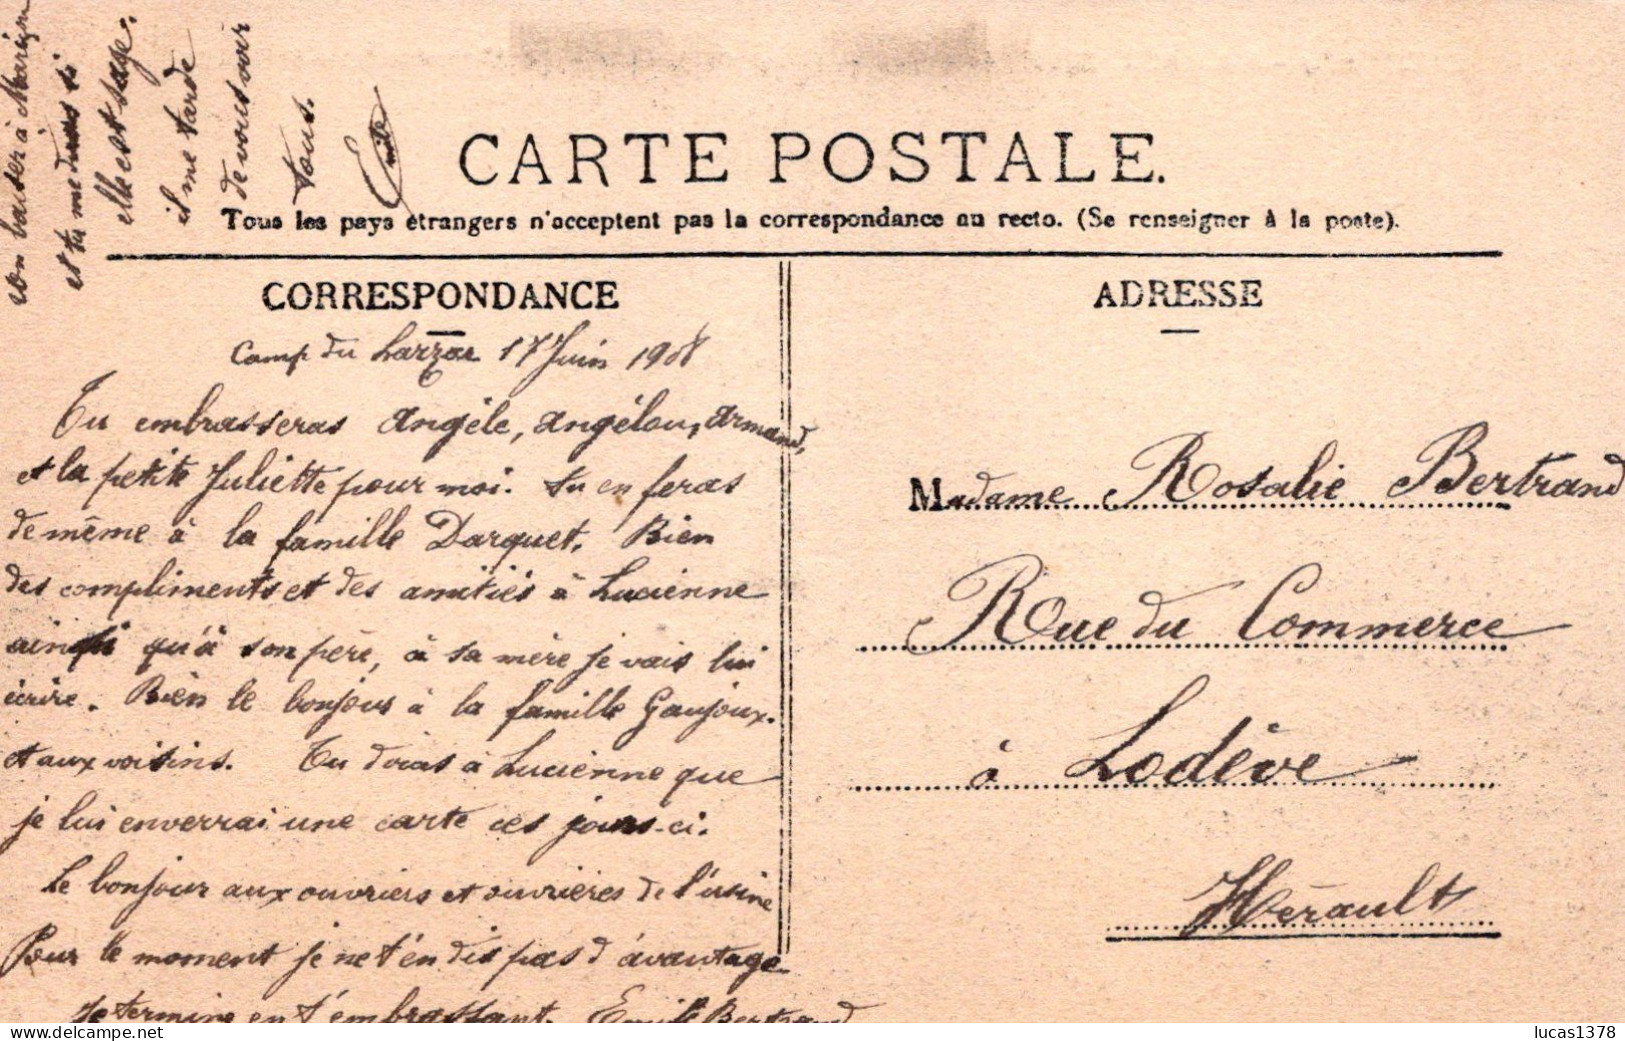 son baiser à Marizon
et tu me diras si
elle est sage.
il me tarde
de vous voir
tous.
Emile
CARTE POSTALE.
Tous les pays étrangers n'acceptent pas la correspondance au recto. (Se renseigner à la poste).
CORRESPONDANCE
Camp du Larzac 17 Juin 1908
Tu embrasseras Angéle, Angélou, Armand,
et la petite Juliette pour moi. tu en feras
de même à la famille Darquet. Bien
des compliments et des amitiés à Lucienne
ainsi qu'à son père, à sa mère je vais lui
écrire. Bien le bonjour à la famille Gaujoux.
et aux voisins. Tu diras à Lucienne que
je lui enverrai une carte ces jours-ci.
Le bonjour aux ouvriers et ouvrières de l'usine
Pour le moment je ne t'en dis pas d'avantage
Je termine en t'embrassant. Emile Bertrand
ADRESSE
Madame Rosalie Bertrand
Rue du Commerce
à Lodève
Hérault
delcampe.net
lucas1378